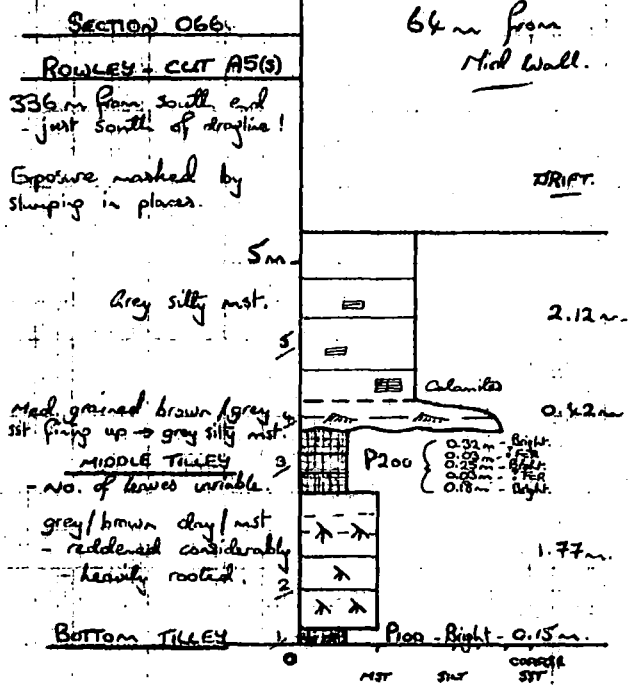 SECTION 066.
64 m from
Mid Wall.
ROWLEY - CUT A5(S)
336 m from south end
- just south of dragline!
Exposure masked by
slumping in places.
DRIFT.
5m
Grey silty mst.
2.12 m.
5
Calamites
Med. grained brown/grey
sst. fining up → grey silty mst.
4
0.42m
MIDDLE TILLEY
3
P200
0.32m - Bright.
0.03m - FER
0.25m - Bright.
0.03m - FER
0.18m - Bright.
- No. of leaves variable.
grey/brown clay/mst
- reddened considerably
- heavily rooted.
2
1.77m.
BOTTOM TILLEY
1
P100 - Bright - 0.15m.
0
MST SILT COARSER
SST.